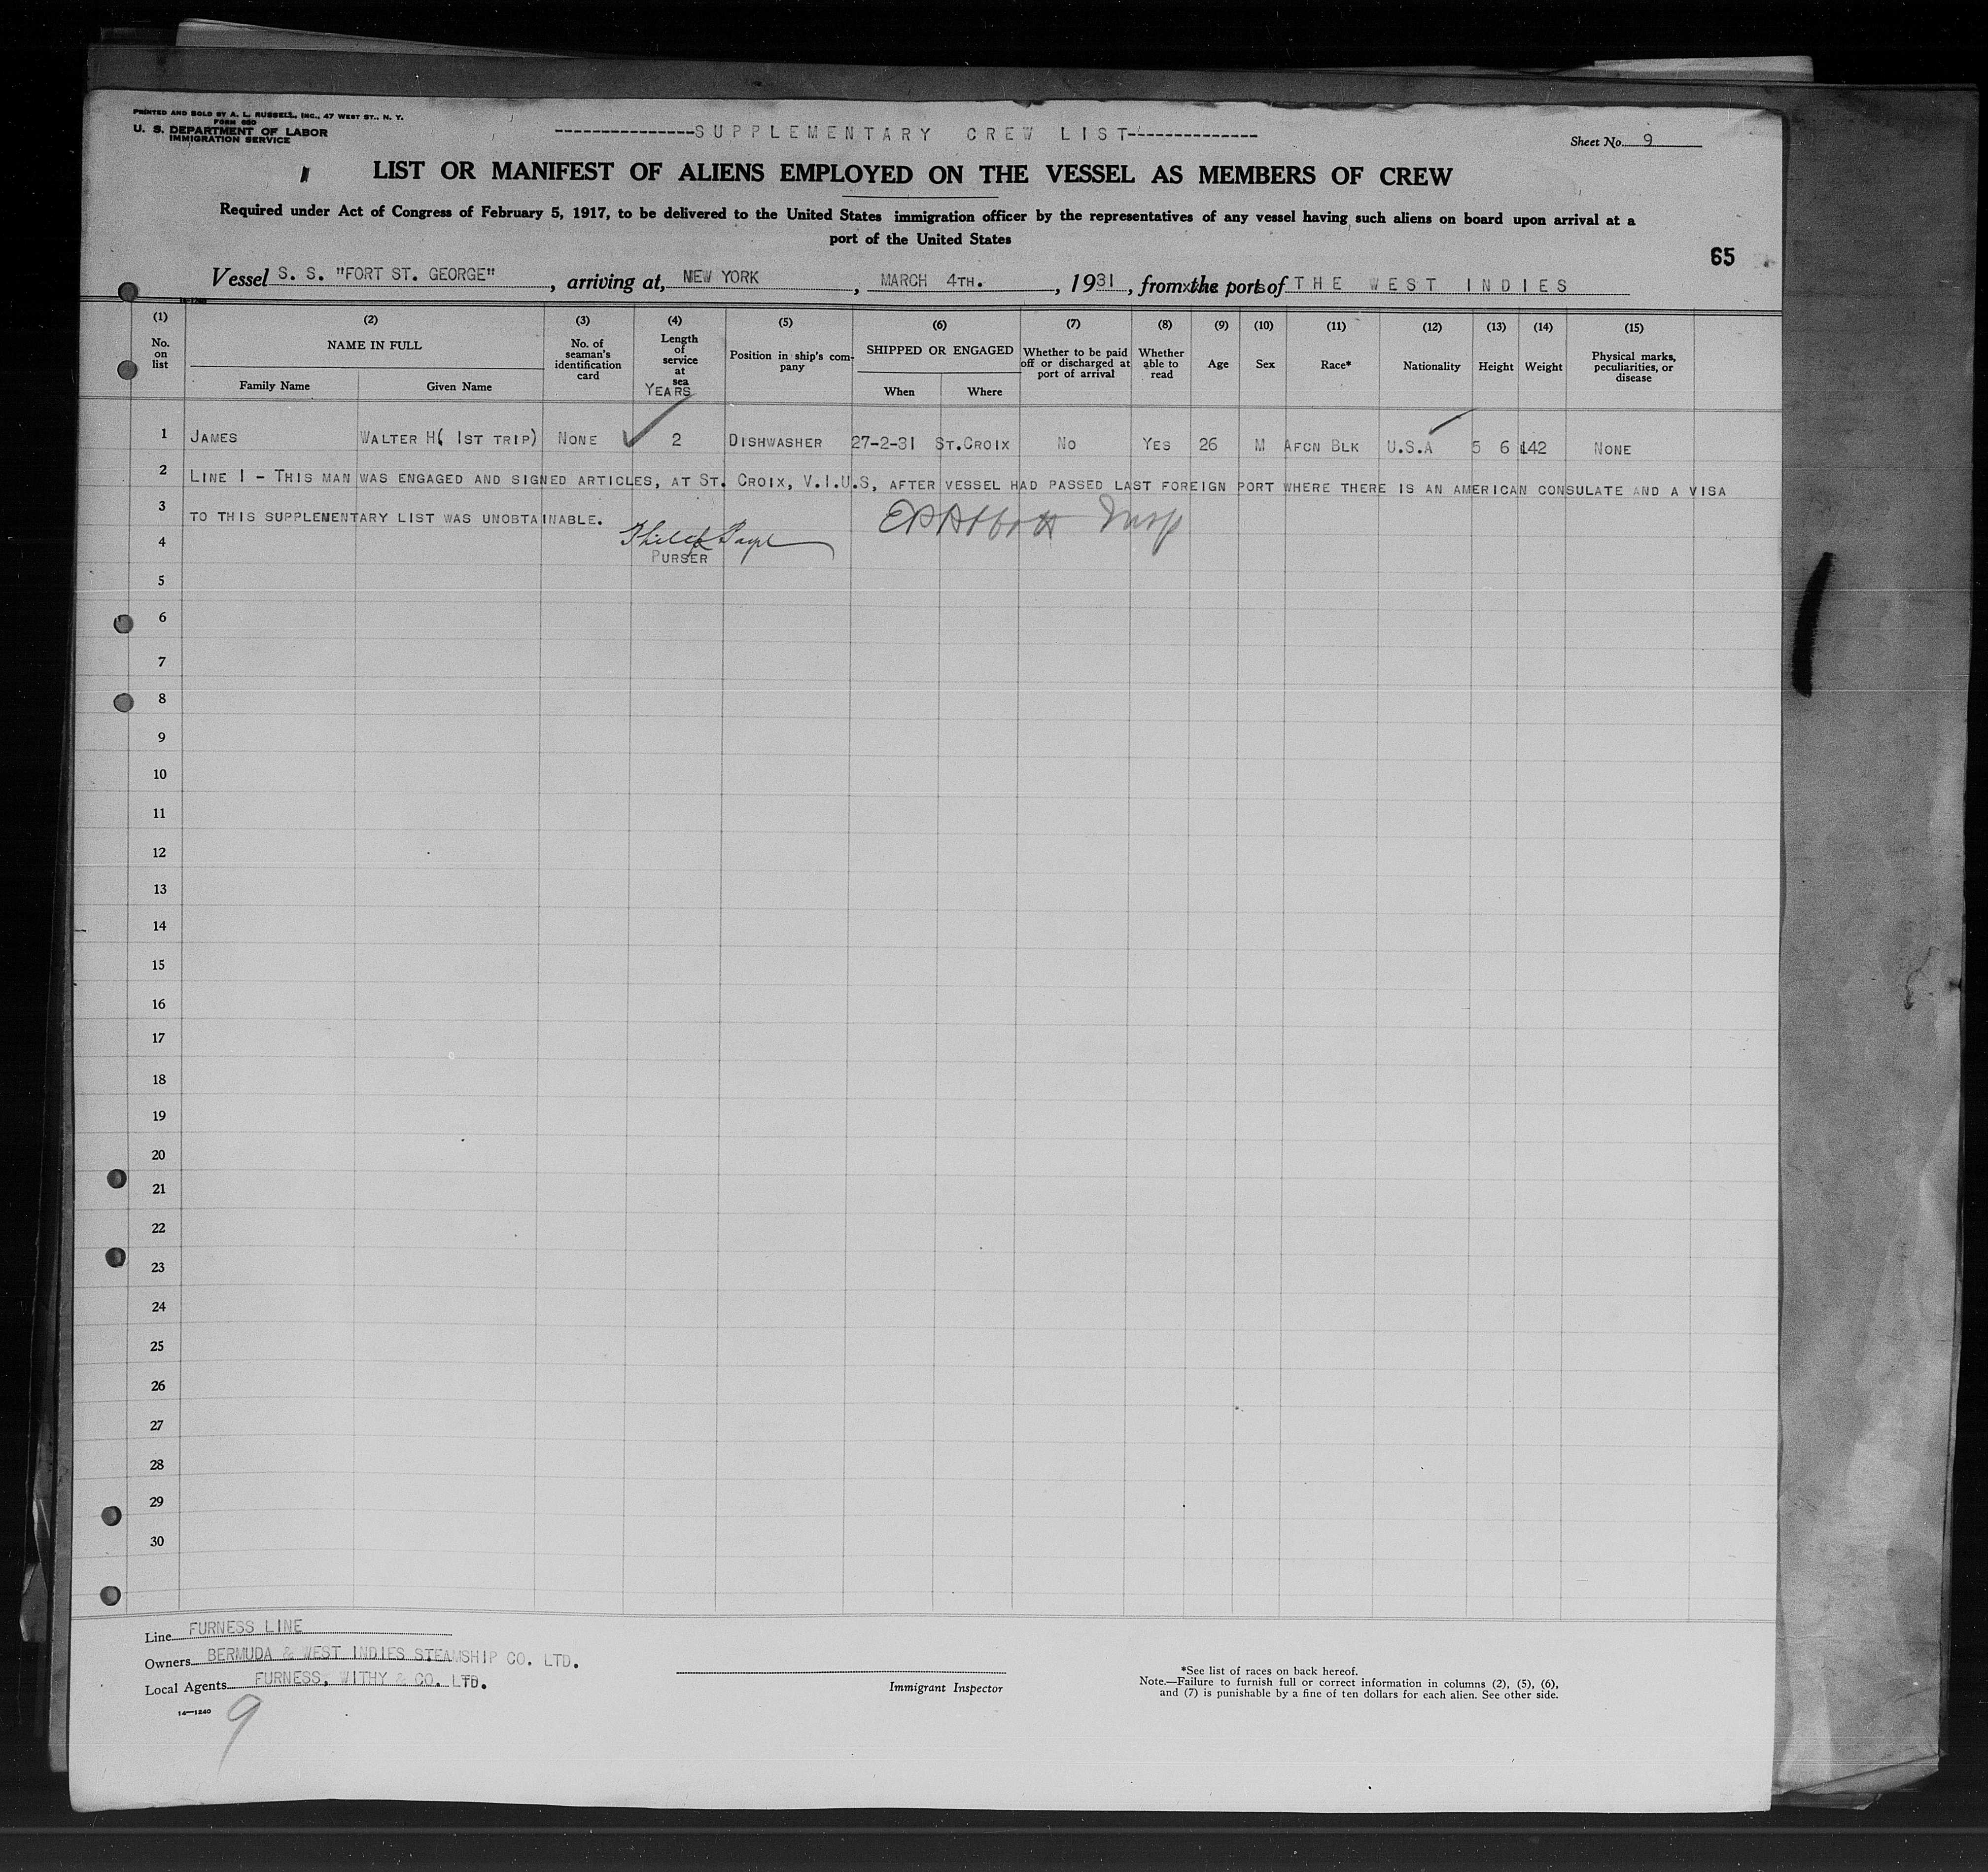 PRINTED AND SOLD BY A. L. RUSSELL, INC., 47 WEST ST., N. Y.
FORM 680
U. S. DEPARTMENT OF LABOR
IMMIGRATION SERVICE
---------------SUPPLEMENTARY CREW LIST--------------
Sheet No. 9
LIST OR MANIFEST OF ALIENS EMPLOYED ON THE VESSEL AS MEMBERS OF CREW
Required under Act of Congress of February 5, 1917, to be delivered to the United States immigration officer by the representatives of any vessel having such aliens on board upon arrival at a
port of the United States
65
Vessel S. S. "FORT ST. GEORGE", arriving at, NEW YORK, MARCH 4TH., 1931, from the port of THE WEST INDIES
(1) (2) (3) (4) (5) (6) (7) (8) (9) (10) (11) (12) (13) (14) (15)
No. on list NAME IN FULL Family Name Given Name No. of seaman's identification card Length of service at sea YEARS Position in ship's company SHIPPED OR ENGAGED When Where Whether to be paid off or discharged at port of arrival Whether able to read Age Sex Race* Nationality Height Weight Physical marks, peculiarities, or disease
1 JAMES WALTER H( 1ST TRIP) NONE 2 DISHWASHER 27-2-31 ST.CROIX NO YES 26 M AFCN BLK U.S.A 5 6 142 NONE
2 LINE 1 - THIS MAN WAS ENGAGED AND SIGNED ARTICLES, AT ST. CROIX, V.I.U.S, AFTER VESSEL HAD PASSED LAST FOREIGN PORT WHERE THERE IS AN AMERICAN CONSULATE AND A VISA
3 TO THIS SUPPLEMENTARY LIST WAS UNOBTAINABLE.
4 PURSER
5
6
7
8
9
10
11
12
13
14
15
16
17
18
19
20
21
22
23
24
25
26
27
28
29
30
Line FURNESS LINE
Owners BERMUDA & WEST INDIES STEAMSHIP CO. LTD.
Local Agents FURNESS, WITHY & CO. LTD.
14—1240
9
Immigrant Inspector
*See list of races on back hereof.
Note.—Failure to furnish full or correct information in columns (2), (5), (6),
and (7) is punishable by a fine of ten dollars for each alien. See other side.